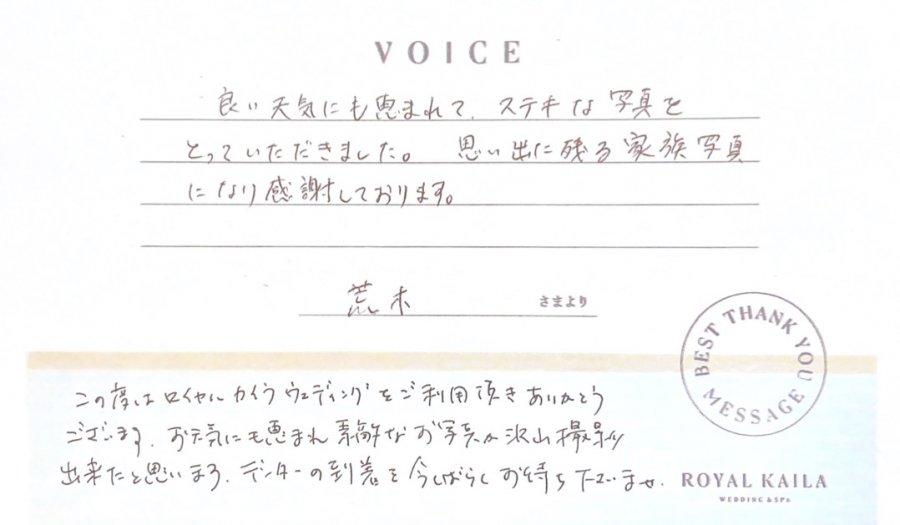 VOICE
良い天気にも恵まれて、ステキな写真を
とっていただきました。 思い出に残る家族写真
になり感謝しております。
荒木 さまより
BEST THANK YOU MESSAGE
この度はロイヤルカイラウェディングをご利用頂きありがとう
ございます。お天気にも恵まれ素敵なお写真が沢山撮影
出来たと思います。データーの到着を今しばらくお待ち下さいませ。
ROYAL KAILA
WEDDING & SPA